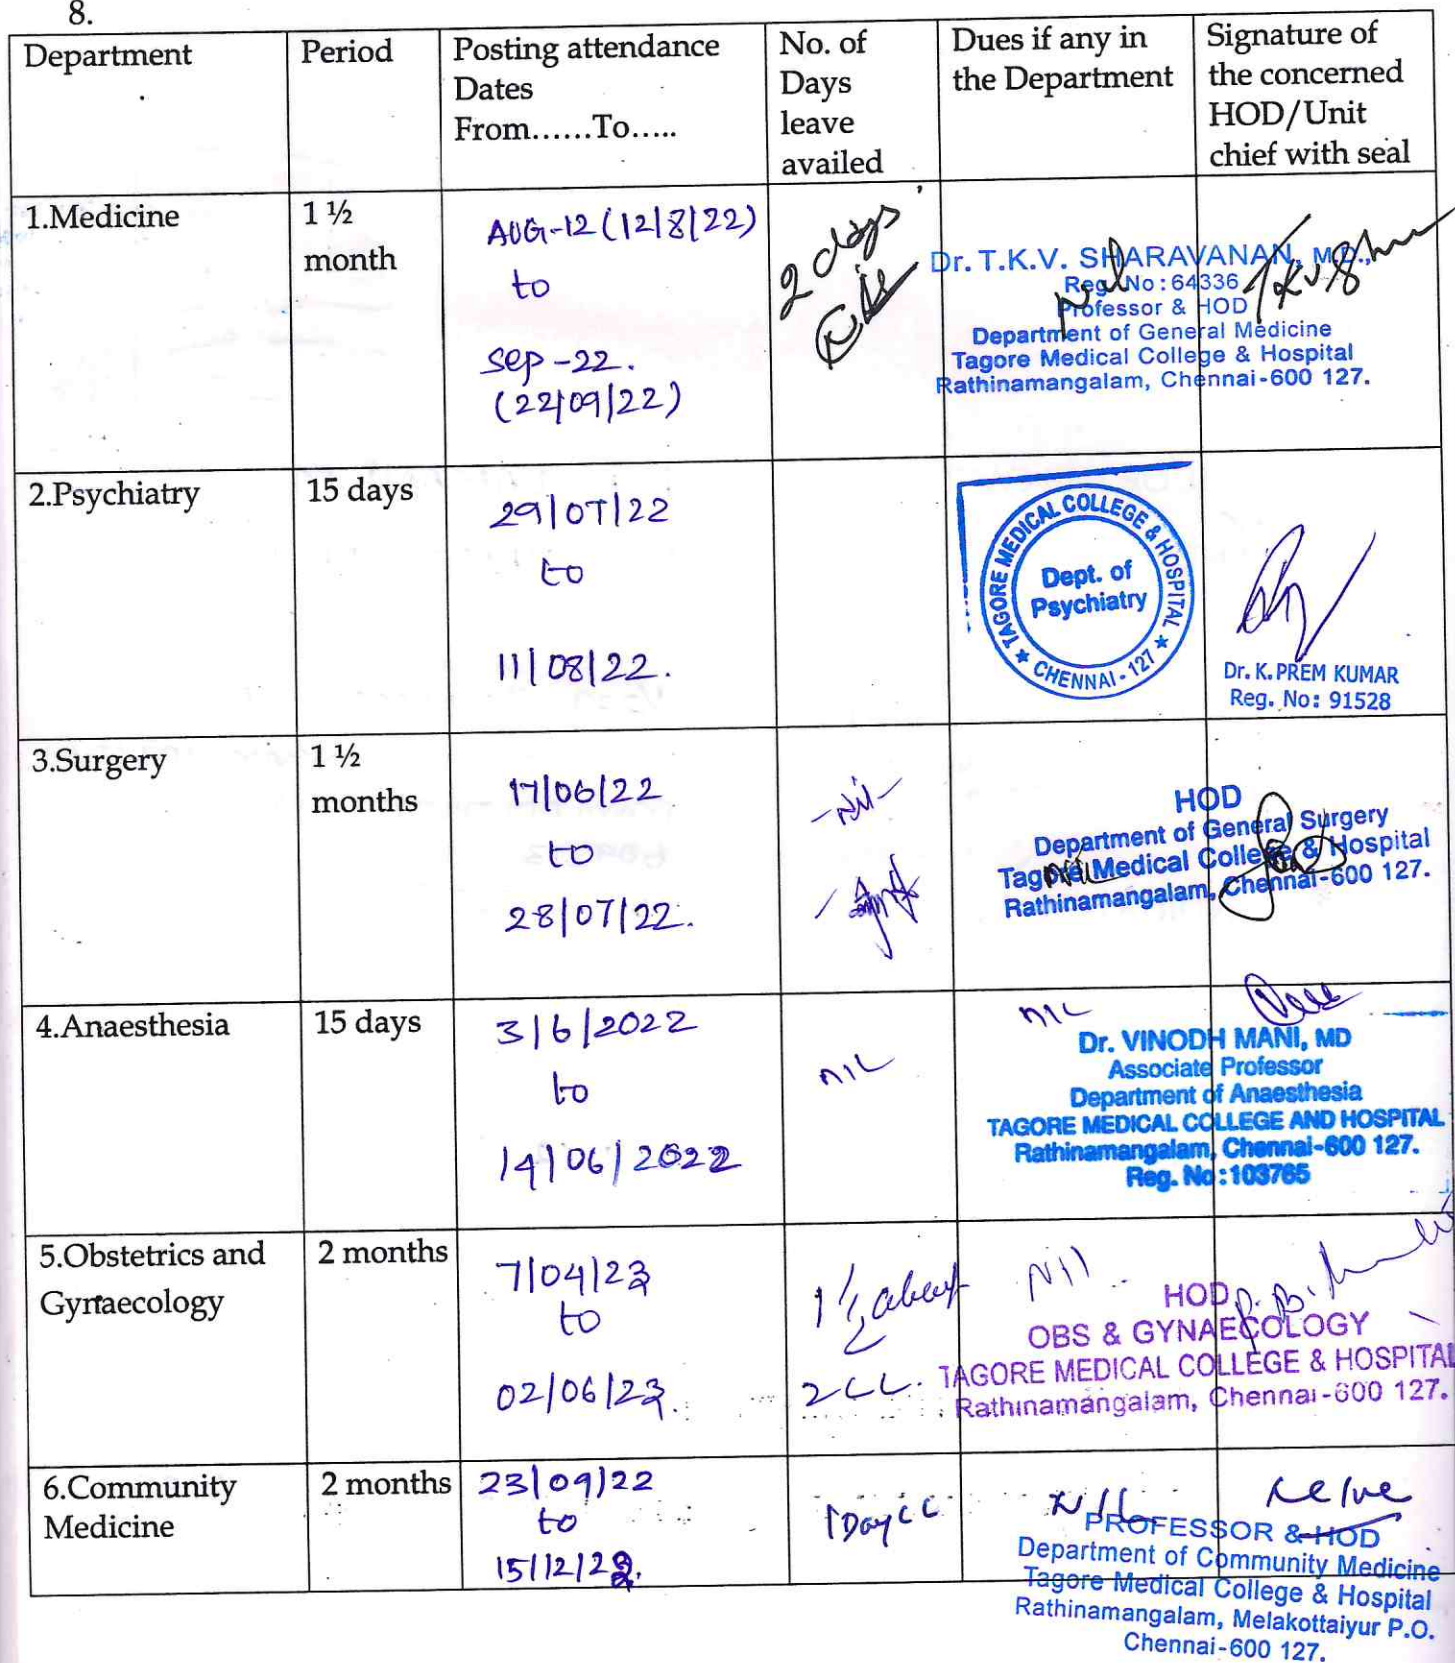 8.
Department
Period
Posting attendance
Dates
From......To.....
No. of
Days
leave
availed
Dues if any in
the Department
Signature of
the concerned
HOD/Unit
chief with seal
1.Medicine
1 ½
month
AUG-12 (12/8/22)
to
Sep-22.
(22/09/22)
2 days
Nil
Dr. T.K.V. SHARAVANAN, M.D.,
Reg. No : 64336
Professor & HOD
Department of General Medicine
Tagore Medical College & Hospital
Rathinamangalam, Chennai-600 127.
2.Psychiatry
15 days
29/07/22
to
11/08/22.
TAGORE MEDICAL COLLEGE & HOSPITAL
Dept. of
Psychiatry
CHENNAI - 127
Dr. K. PREM KUMAR
Reg. No: 91528
3.Surgery
1 ½
months
17/06/22
to
28/07/22.
-Nil-
Nil
HOD
Department of General Surgery
Tagore Medical College & Hospital
Rathinamangalam, Chennai-600 127.
4.Anaesthesia
15 days
3/6/2022
to
14/06/2022
NIL
NIL
Dr. VINODH MANI, MD
Associate Professor
Department of Anaesthesia
TAGORE MEDICAL COLLEGE AND HOSPITAL
Rathinamangalam, Chennai-600 127.
Reg. No : 103765
5.Obstetrics and
Gynaecology
2 months
7/04/23
to
02/06/23.
1 ½
2 CL.
Nil
HOD
OBS & GYNAECOLOGY
TAGORE MEDICAL COLLEGE & HOSPITAL
Rathinamangalam, Chennai-600 127.
6.Community
Medicine
2 months
23/09/22
to
15/12/22.
1 Day CL
Nil
PROFESSOR & HOD
Department of Community Medicine
Tagore Medical College & Hospital
Rathinamangalam, Melakottaiyur P.O.
Chennai-600 127.